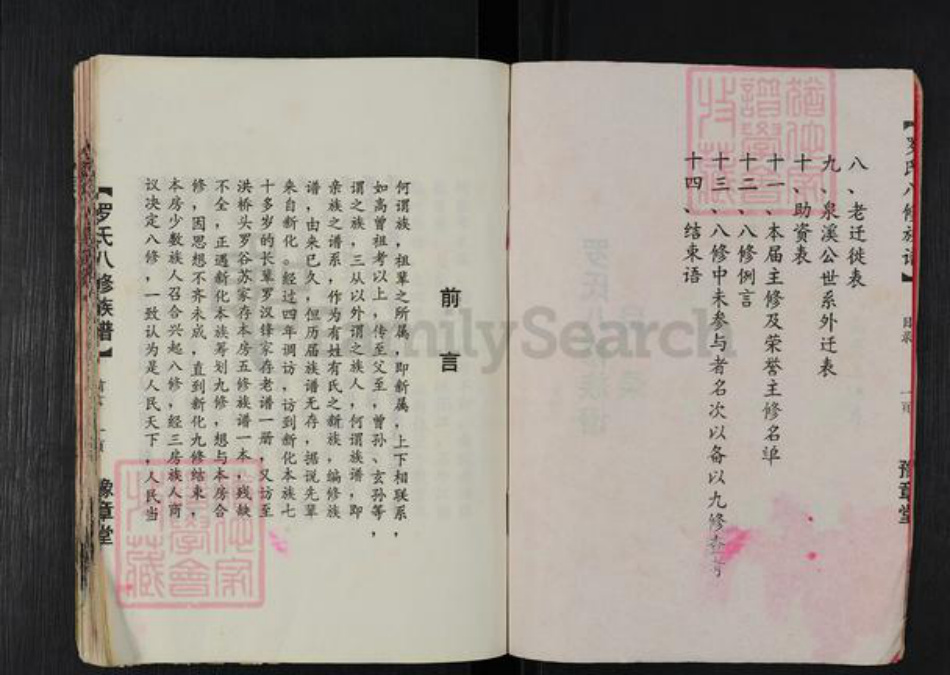 【罗氏八修族谱】
目录
豫章堂
八、老迁徙表
九、泉溪公世系外迁表
十、助资表
十一、本届主修及荣誉主修名单
十二、八修例言
十三、八修中未参与者名次以备以九修查
十四、结束语
前言
何谓族，祖辈之所属，即新属，上下相联系，
如高曾祖考以上，传至父至，曾孙、玄孙等，
谓之族，三从以外谓之族人，何谓族谱，即
亲族之谱系，作为有姓有氏之新族，编修族
谱，由来已久，但历届族谱无存，据说先辈
来自新化。经过四年调访，访到新化本族七
十多岁的长辈罗汉锋家存老谱一册，又访至
洪桥头罗谷苏家存本房五修族谱一本，残缺
不全，正遇新化本族筹划九修，想与本房合
修，因思想不齐未成，直到新化九修结束，
本房少数族人召合兴起八修，经三房族人商
议决定八修，一致认为是人民天下，人民当
【罗氏八修族谱】
前言
豫章堂
FamilySearch